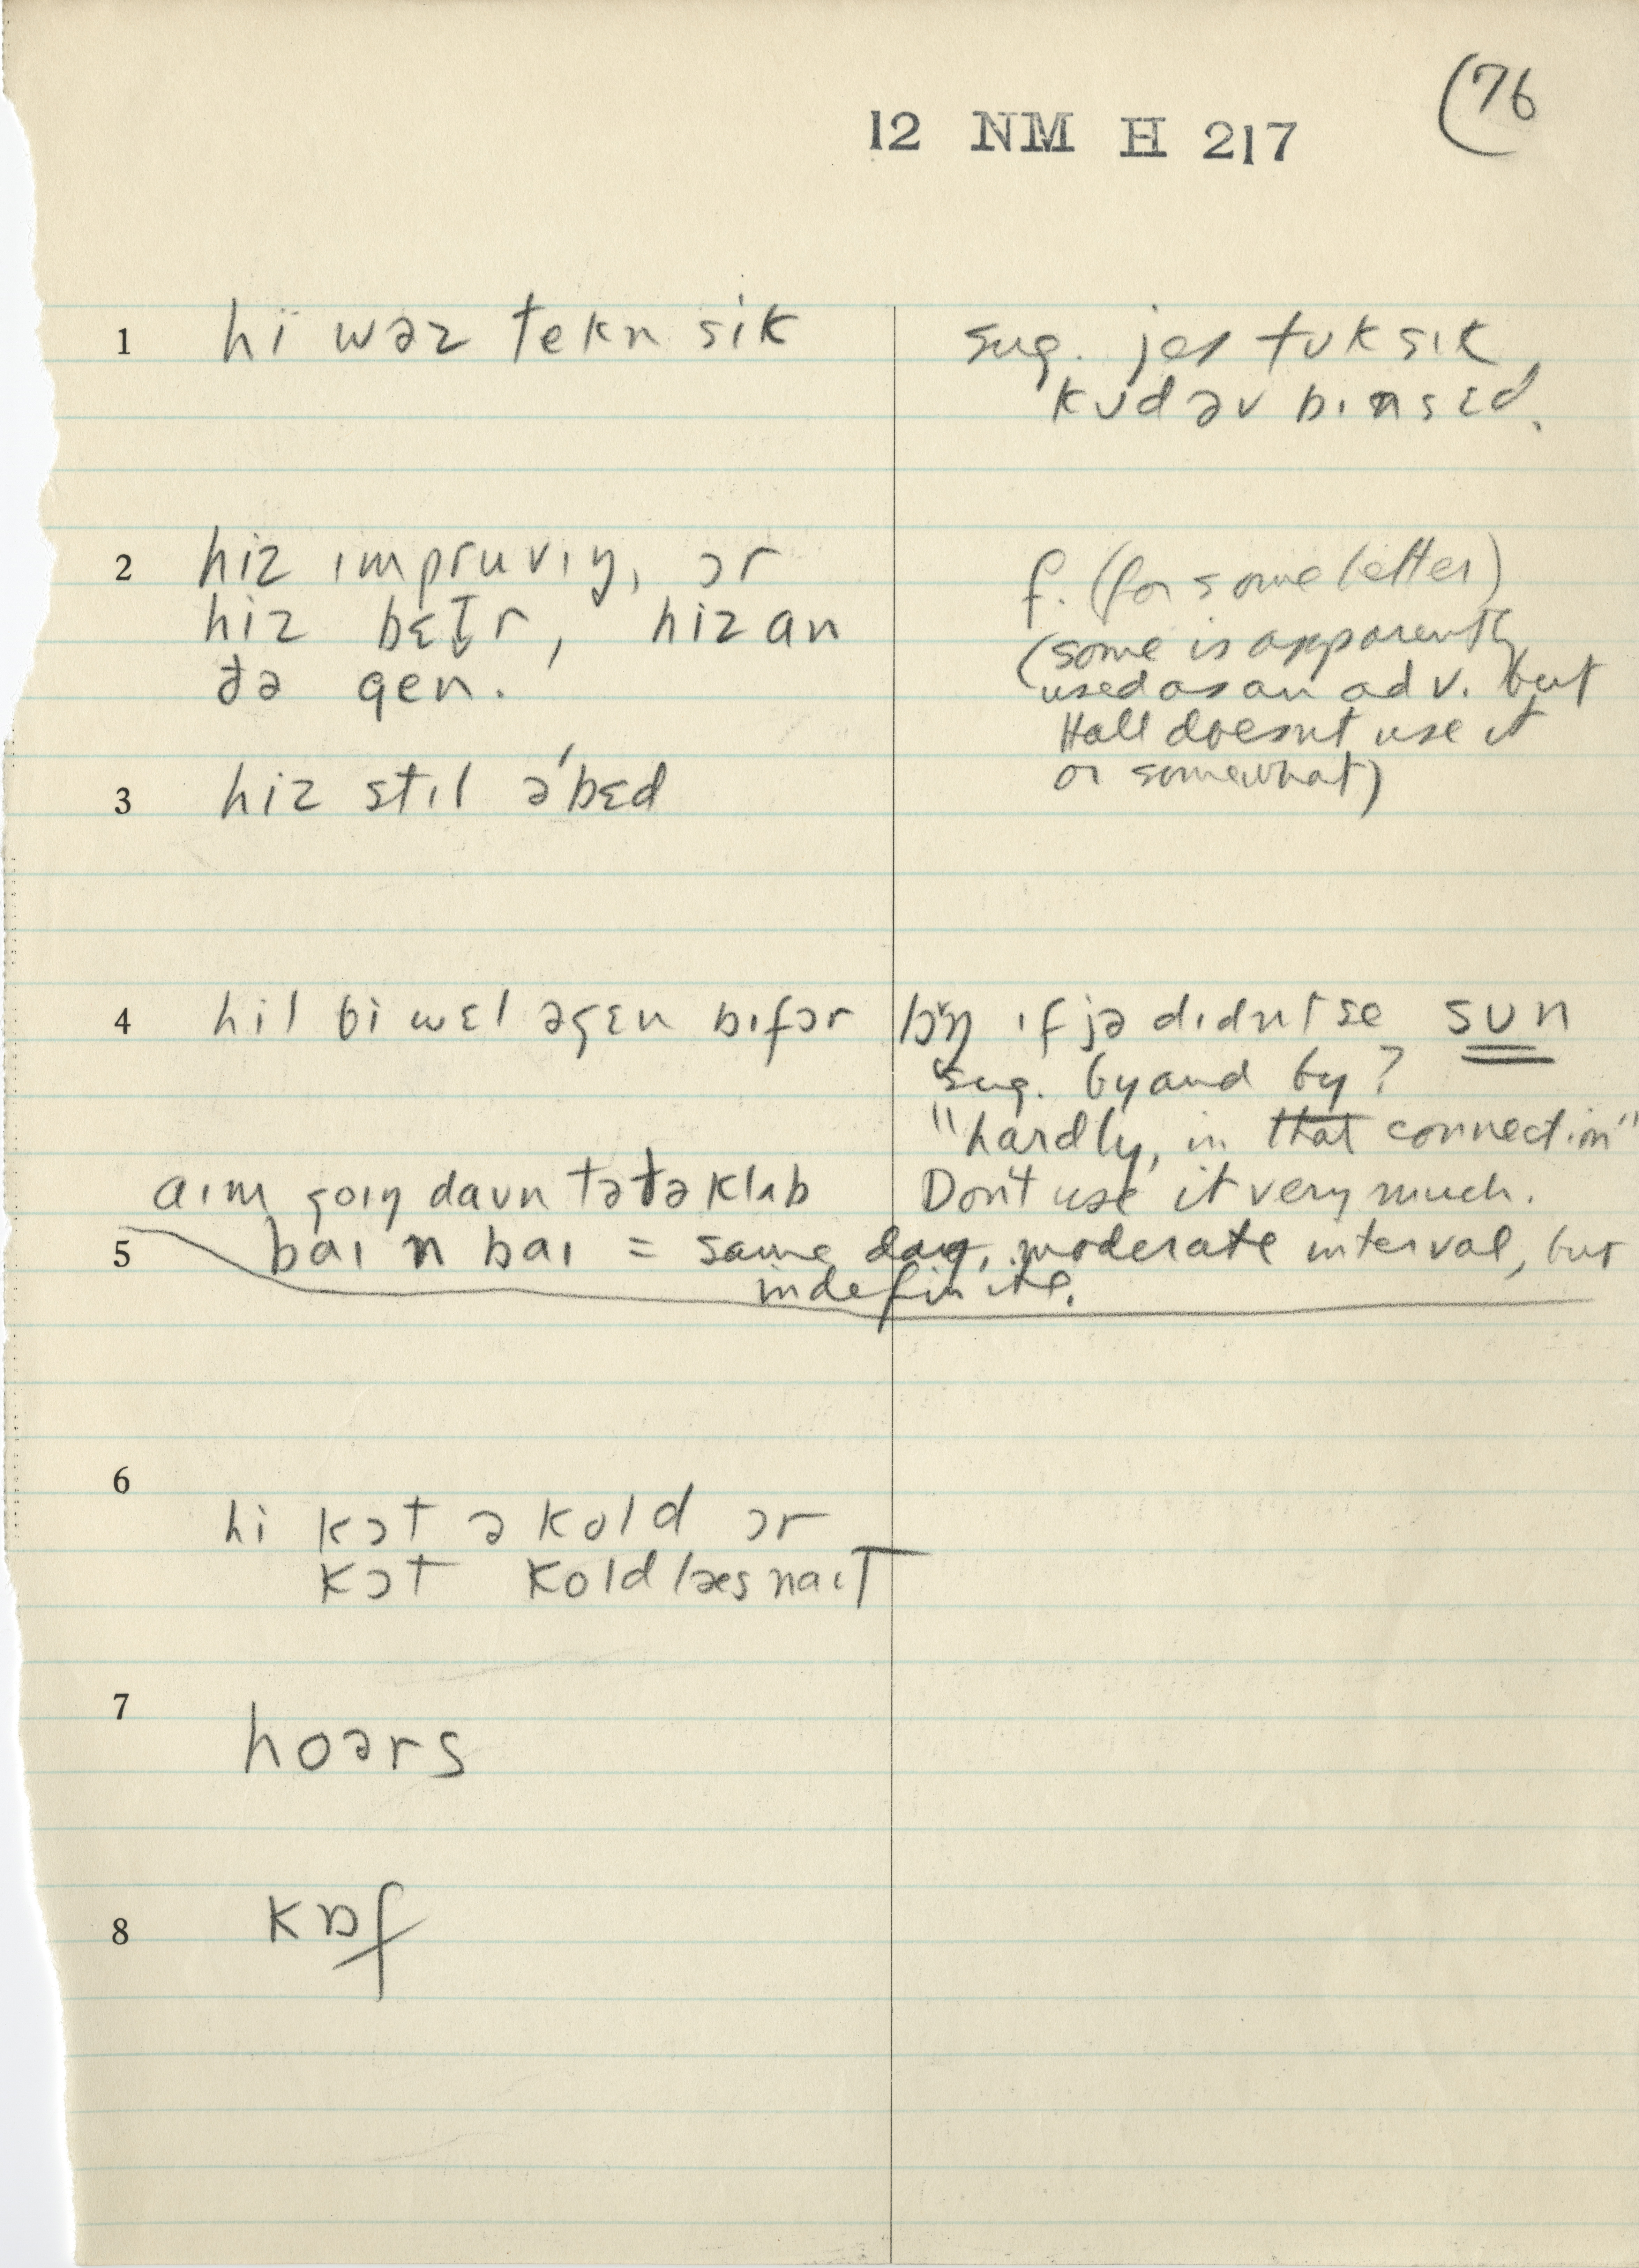 (76
12 NM H 217
1 hi wəz tekn sik
sug. jes tʊk sɪk
kʊd əv bɪn sɛd.
2 hiz ɪmpruvɪŋ, ɔr
hiz bɛt̬r, hiz an
ðə gen.
f. (for some better)
(some is apparently
used as an adv. but
Hall doesn't use it
or somewhat)
3 hiz stɪl ə'bɛd
4 hil bi wɛl əgɛn bɪfɔr lɔŋ ɪf jə dɪdnt se sun
sug. by and by?
"hardly, in that connection"
Don't use it very much.
aɪm goɪŋ daʊn tə ðə klʌb
5 baɪ n baɪ = same day, moderate interval, but
indefinite.
6
hi kɔt ə kold ɔr
kɔt kold læs naɪt
7
hoərs
8 kɒf